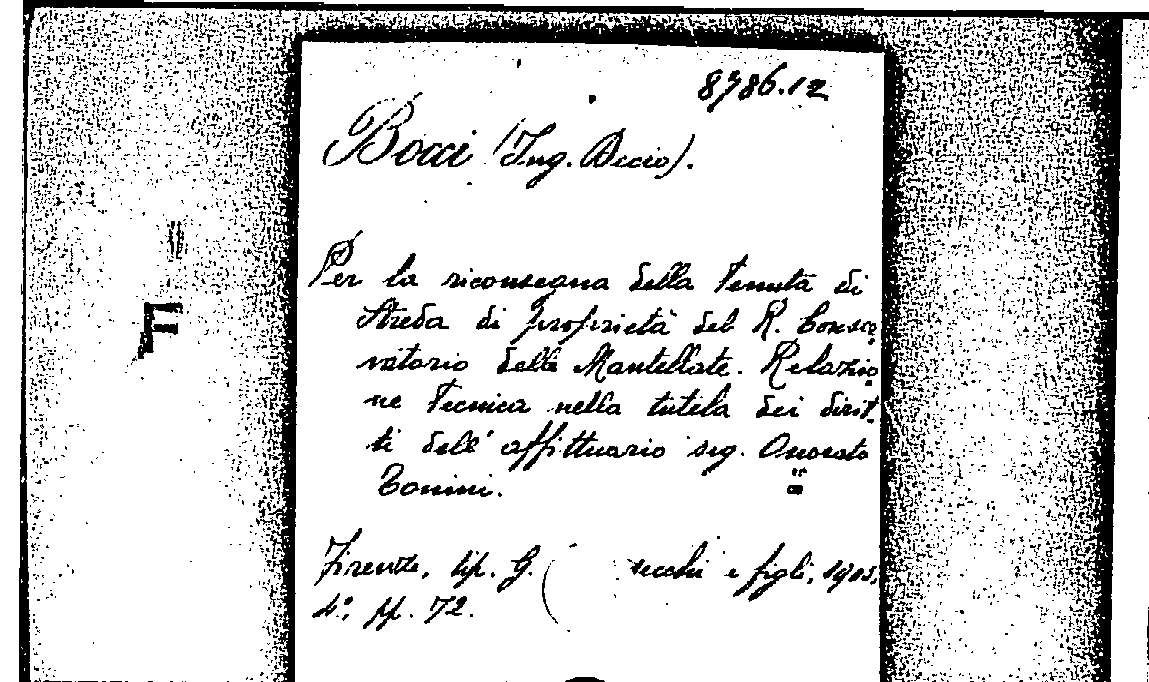 8786.12
Bocci (Ing. Decio).
Per la riconsegna della Tenuta di
Streda di proprietà del R. Conser-
vatorio delle Mantellate. Relazio-
ne tecnica nella tutela dei dirit-
ti dell' affittuario sig. Onorato
Tonini.
Firenze, tip. G. ecchi e figli,
4°, pp. 72.
F